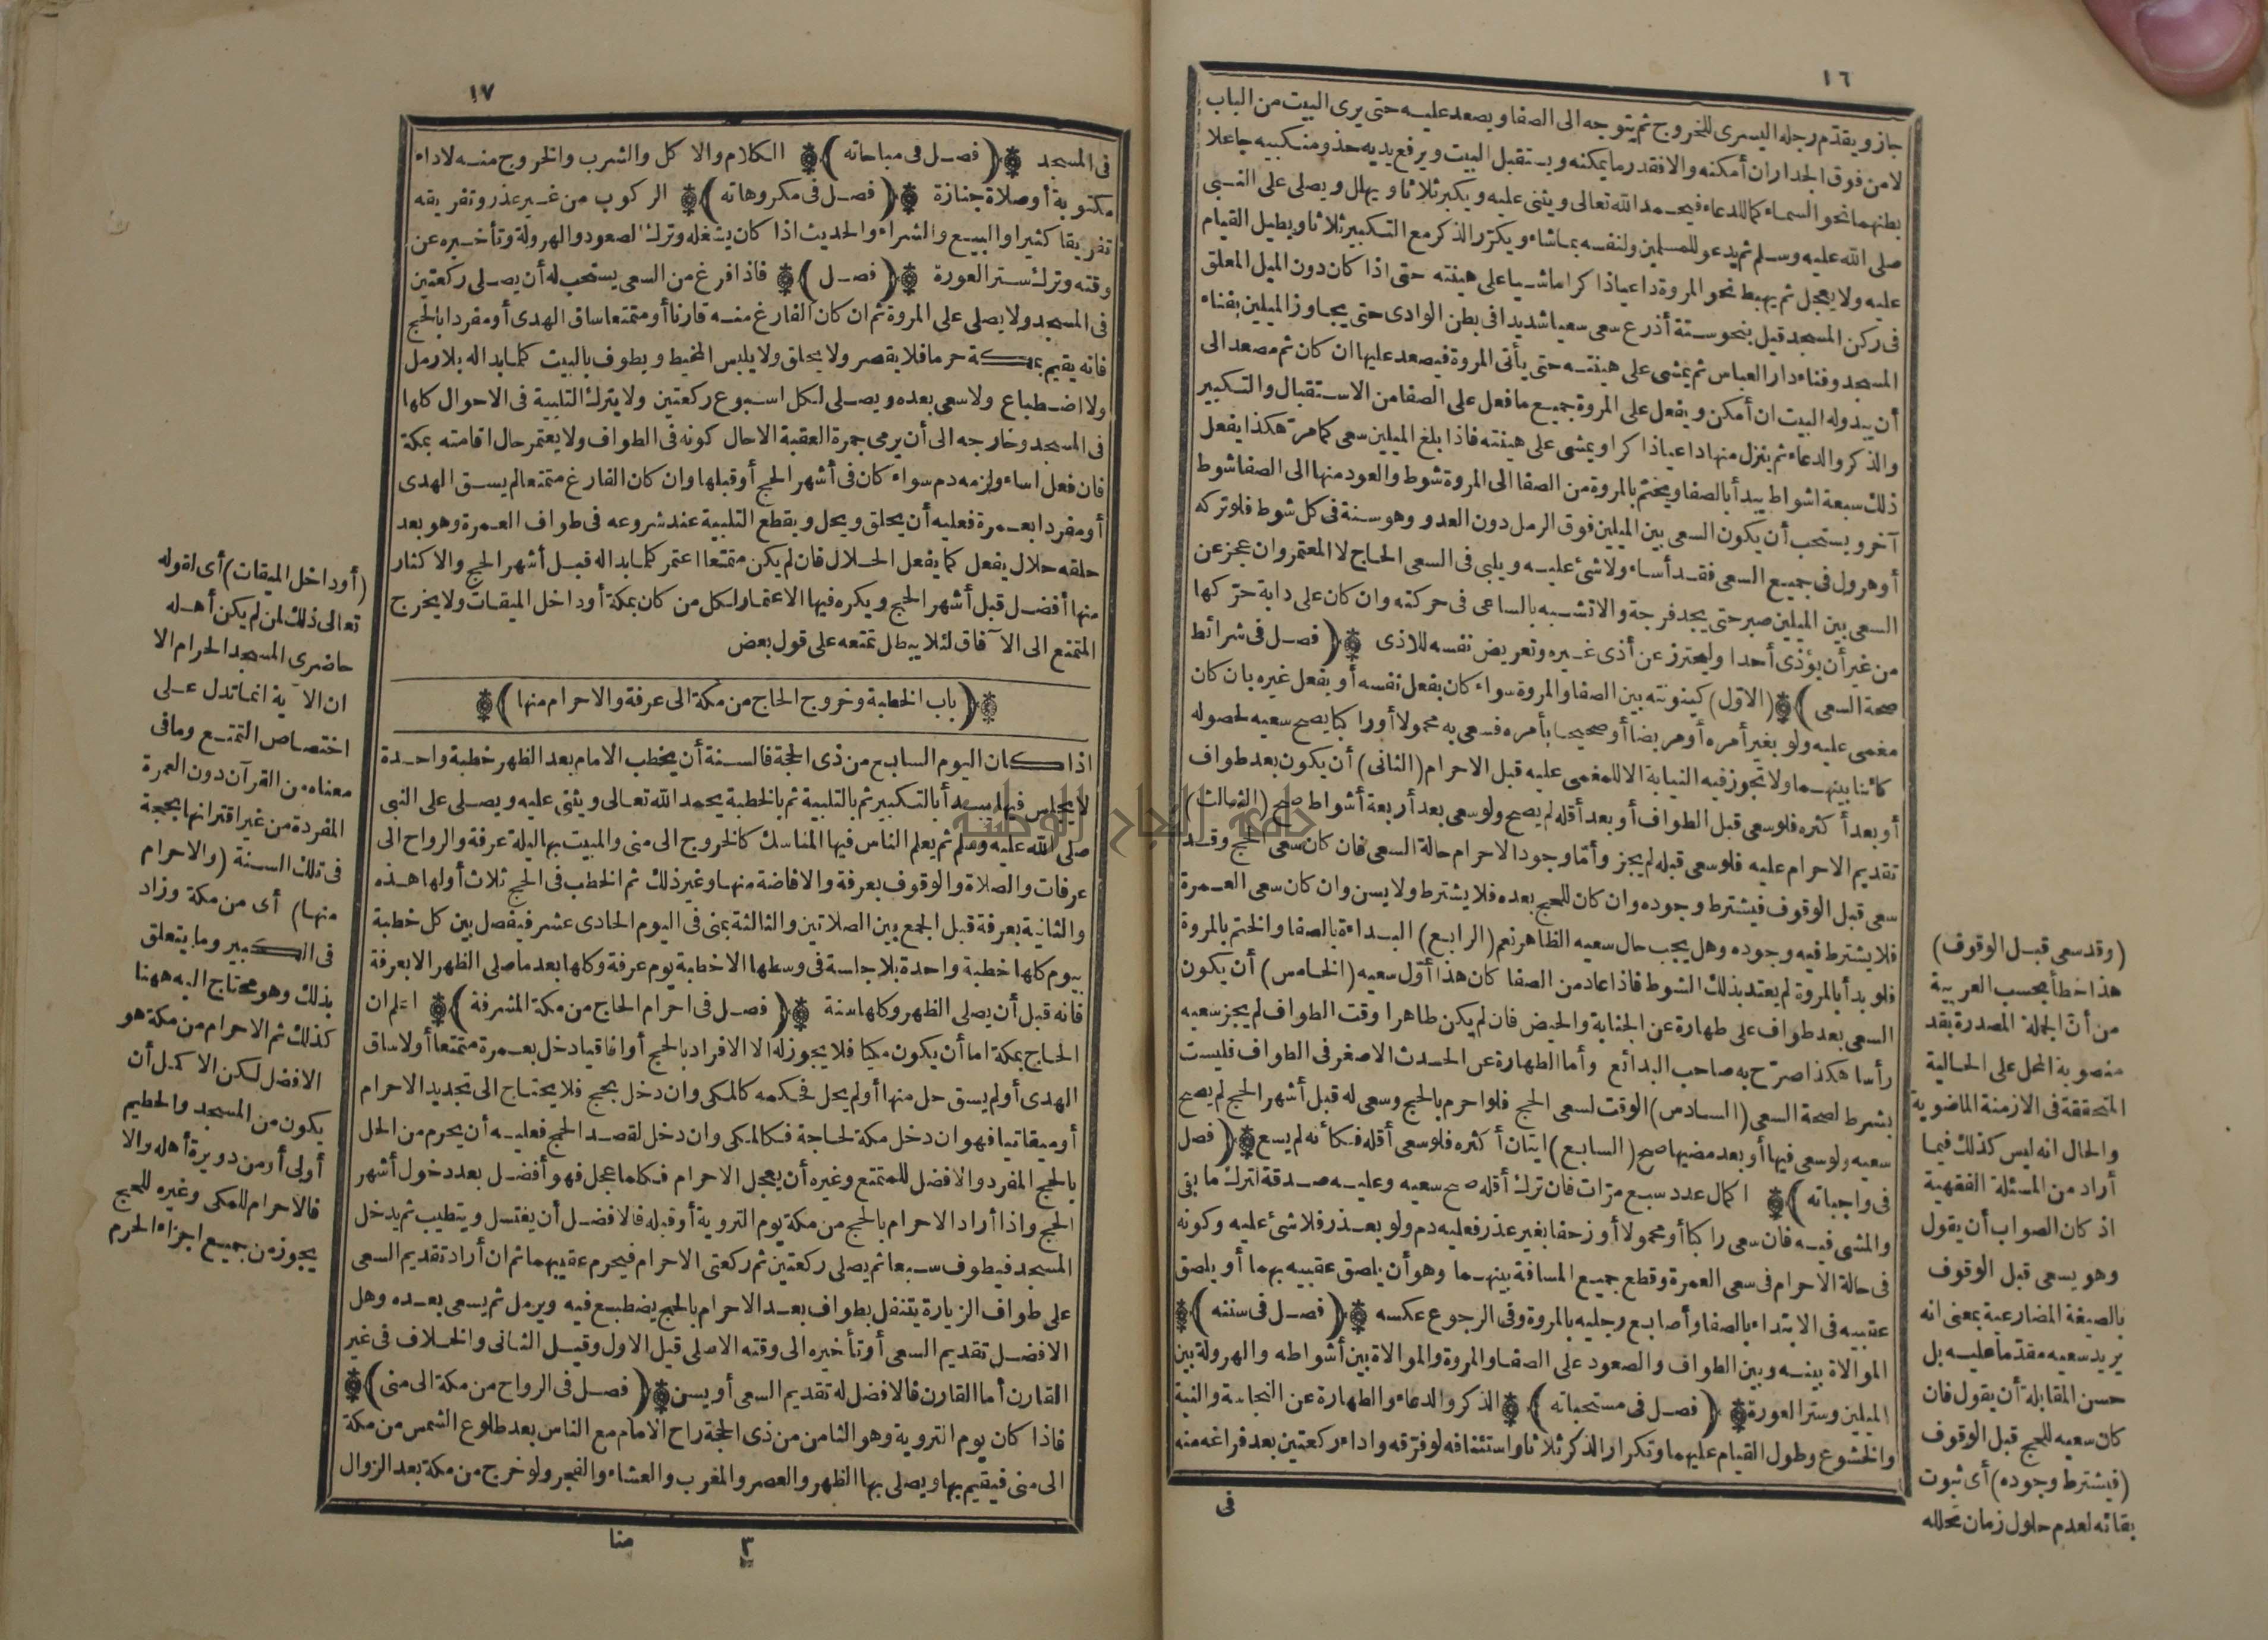 ١٦
جاز ويقدّم رجله اليسرى للخروج ثم يتوجه الى الصفا ويصعد عليه حتى يرى البيت من الباب
لا من فوق الجدار ان أمكنه والا فقدر ما يمكنه ويستقبل البيت ويرفع يديه حذو منكبيه جاعلا
بطنهما نحو السماء كما للدعاء فيحمد الله تعالى ويثنى عليه ويكبر ثلاثا ويهلل ويصلى على النبى
صلى الله عليه وسلم ثم يدعو للمسلمين ولنفسه بما شاء ويكرّر الذكر مع التكبير ثلاثا ويطيل القيام
عليه ولا يعجل ثم يهبط نحو المروة داعيا ذاكرا ماشيا على هينته حتى اذا كان دون الميل المعلق
فى ركن المسجد قيل بنحو ستة أذرع سعى سعيا شديدا فى بطن الوادى حتى يجاوز الميلين بفناء
المسجد وفناء دار العباس ثم يمشى على هينته حتى يأتى المروة فيصعد عليها ان كان ثم مصعد الى
أن يبدو له البيت ان أمكن ويفعل على المروة جميع ما فعل على الصفا من الاستقبال والتكبير
والذكر والدعاء ثم ينزل منها داعيا ذاكرا ويمشى على هينته فاذا بلغ الميلين سعى كما مرّ هكذا يفعل
ذلك سبعة اشواط يبدأ بالصفا ويختم بالمروة من الصفا الى المروة شوط والعود منها الى الصفا شوط
آخر ويستحب أن يكون السعى بين الميلين فوق الرمل دون العدو وهو سنة فى كل شوط فلو تركه
أو هرول فى جميع السعى فقد أساء ولا شئ عليه ويلبى فى السعى الحاج لا المعتمر وان عجز عن
السعى بين الميلين صبر حتى يجد فرجة والا تشبه بالساعى فى حركته وان كان على دابة حرّكها
من غير أن يؤذى أحدا وليحترز عن أذى غيره وتعريض نفسه للاذى (فصل فى شرائط
صحة السعى) (الاول) كينونته بين الصفا والمروة سواء كان بفعل نفسه أو بفعل غيره بان كان
مغمى عليه ولو بغير أمره أو مريضا أو صحيحا بأمره فسعى به محمولا أو راكبا يصح سعيه لحصوله
كائنا بينهما ولا تجوز فيه النيابة الا للمغمى عليه قبل الاحرام (الثانى) أن يكون بعد طواف
أو بعد أكثره فلو سعى قبل الطواف أو بعد أقله لم يصح ولو سعى بعد أربعة أشواط صح (الثالث)
تقديم الاحرام عليه فلو سعى قبله لم يجز وأمّا وجود الاحرام حالة السعى فان كان سعى الحج وقد
سعى قبل الوقوف فيشترط وجوده وان كان للحج بعده فلا يشترط ولا يسن وان كان سعى العمرة
فلا يشترط فيه وجوده وهل يجب حال سعيه الظاهر نعم (الرابع) البداءة بالصفا والختم بالمروة
فلو بدأ بالمروة لم يعتد بذلك الشوط فاذا عاد من الصفا كان هذا أوّل سعيه (الخامس) أن يكون
السعى بعد طواف على طهارة عن الجنابة والحيض فان لم يكن طاهرا وقت الطواف لم يجز سعيه
رأسا هكذا صرّح به صاحب البدائع وأما الطهارة عن الحدث الاصغر فى الطواف فليست
بشرط لصحة السعى (السادس) الوقت لسعى الحج فلو احرم بالحج وسعى له قبل أشهر الحج لم يصح
سعيه ولو سعى فيها أو بعد مضيها صح (السابع) اتيان أكثره فلو سعى أقله فكأنه لم يسع (فصل
فى واجباته) اكمال عدد سبع مرّات فان ترك أقله صح سعيه وعليه صدقة لترك ما بقى
والمشى فيه فان سعى راكبا أو محمولا أو زحفا بغير عذر فعليه دم ولو بعذر فلا شئ عليه وكونه
فى حالة الاحرام فى سعى العمرة وقطع جميع المسافة بينهما وهو أن يلصق عقبيه بهما أو يلصق
عقبيه فى الابتداء بالصفا وأصابع رجليه بالمروة وفى الرجوع عكسه (فصل فى سننه)
الموالاة بينه وبين الطواف والصعود على الصفا والمروة والموالاة بين أشواطه والهرولة بين
الميلين وستر العورة (فصل فى مستحباته) الذكر والدعاء والطهارة عن النجاسة والنية
والخشوع وطول القيام عليهما وتكرار الذكر ثلاثا واستئنافه لو فرّقه واداء ركعتين بعد فراغه منه
فى
(وقد سعى قبل الوقوف)
هذا خطأ بحسب العربية
من أنّ الجملة المصدرة بقد
منصوبة المحل على الحالية
المتحققة فى الازمنة الماضوية
والحال انه ليس كذلك فيما
أراد من المسئلة الفقهية
اذ كان الصواب أن يقول
وهو يسعى قبل الوقوف
بالصيغة المضارعية بمعنى انه
يريد سعيه مقدّما عليه بل
حسن المقابلة أن يقول فان
كان سعيه للحج قبل الوقوف
(فيشترط وجوده) أى ثبوت
بقائه لعدم حلول زمان تحلله
١٧
فى المسجد (فصل فى مباحاته) الكلام والاكل والشرب والخروج منه لاداء
مكتوبة أو صلاة جنازة (فصل فى مكروهاته) الركوب من غير عذر وتفريقه
تفريقا كثيرا والبيع والشراء والحديث اذا كان يشغله وترك الصعود والهرولة وتأخيره عن
وقته وترك ستر العورة (فصل) فاذا فرغ من السعى يستحب له أن يصلى ركعتين
فى المسجد ولا يصلى على المروة ثم ان كان الفارغ منه قارنا أو متمتعا ساق الهدى أو مفردا بالحج
فانه يقيم بمكة حرما فلا يقصر ولا يحلق ولا يلبس المخيط ويطوف بالبيت كلما بدا له بلا رمل
ولا اضطباع ولا سعى بعده ويصلى لكل اسبوع ركعتين ولا يترك التلبية فى الاحوال كلها
فى المسجد وخارجه الى أن يرمى جمرة العقبة الا حال كونه فى الطواف ولا يعتمر حال اقامته بمكة
فان فعل اساء ولزمه دم سواء كان فى أشهر الحج أو قبلها وان كان الفارغ متمتعا لم يسق الهدى
أو مفردا بعمرة فعليه أن يحلق ويحل ويقطع التلبية عند شروعه فى طواف العمرة وهو بعد
حلقه حلال يفعل كما يفعل الحلال فان لم يكن متمتعا اعتمر كلما بدا له قبل أشهر الحج والاكثار
منها أفضل قبل أشهر الحج ويكره فيها الاعتمار لكل من كان بمكة أو داخل الميقات ولا يخرج
المتمتع الى الآفاق لئلا يبطل تمتعه على قول بعض
(باب الخطبة وخروج الحاج من مكة الى عرفة والاحرام منها)
اذا كان اليوم السابع من ذى الحجة فالسنة أن يخطب الامام بعد الظهر خطبة واحدة
لا يجلس فيها يبدأ بالتكبير ثم بالتلبية ثم بالخطبة يحمد الله تعالى ويثنى عليه ويصلى على النبى
صلى الله عليه وسلم ثم يعلم الناس فيها المناسك كالخروج الى منى والمبيت بها ليلة عرفة والرواح الى
عرفات والصلاة والوقوف بعرفة والافاضة منها وغير ذلك ثم الخطب فى الحج ثلاث أولها هذه
والثانية بعرفة قبل الجمع بين الصلاتين والثالثة بمنى فى اليوم الحادى عشر فيفصل بين كل خطبة
بيوم كلها خطبة واحدة بلا جلسة فى وسطها الا خطبة يوم عرفة وكلها بعد ما صلى الظهر الا بعرفة
فانه قبل أن يصلى الظهر وكلها سنة (فصل فى احرام الحاج من مكة المشرفة) اعلم ان
الحاج بمكة اما أن يكون مكيا فلا يجوز له الا الافراد بالحج أو افاقيا دخل بعمرة متمتعا أو لا ساق
الهدى أو لم يسق حل منها أو لم يحل فحكمه كالمكى وان دخل بحج فلا يحتاج الى تجديد الاحرام
أو ميقاتيا فهو ان دخل مكة لحاجة فكالمكى وان دخل لقصد الحج فعليه أن يحرم من الحل
بالحج المفرد والافضل للمتمتع وغيره أن يعجل الاحرام فكلما عجل فهو أفضل بعد دخول أشهر
الحج واذا أراد الاحرام بالحج من مكة يوم التروية أو قبله فالافضل أن يغتسل ويتطيب ثم يدخل
المسجد فيطوف سبعا ثم يصلى ركعتين ثم ركعتى الاحرام فيحرم عقيبهما ثم ان أراد تقديم السعى
على طواف الزيارة يتنفل بطواف بعد الاحرام بالحج يضطبع فيه ويرمل ثم يسعى بعده وهل
الافضل تقديم السعى أو تأخيره الى وقته الاصلى قيل الاول وقيل الثانى والخلاف فى غير
القارن أما القارن فالافضل له تقديم السعى أو يسن (فصل فى الرواح من مكة الى منى)
فاذا كان يوم التروية وهو الثامن من ذى الحجة راح الامام مع الناس بعد طلوع الشمس من مكة
الى منى فيقيم بها ويصلى بها الظهر والعصر والمغرب والعشاء والفجر ولو خرج من مكة بعد الزوال
٣
منا
(أو داخل الميقات) أى لقوله
تعالى ذلك لمن لم يكن أهله
حاضرى المسجد الحرام الا
ان الآية انما تدل على
اختصاص التمتع وما فى
معناه من القرآن دون العمرة
المفردة من غير اقترانها بحجة
فى تلك السنة (والاحرام
منها) أى من مكة وزاد
فى الكبير وما يتعلق
بذلك وهو محتاج اليه ههنا
كذلك ثم الاحرام من مكة هو
الافضل لكن الاكمل أن
يكون من المسجد والحطيم
أولى أو من دويرة أهله والا
فالاحرام للمكى وغيره للحج
يجوز من جميع اجزاء الحرم
جامعة النجاح الوطنية